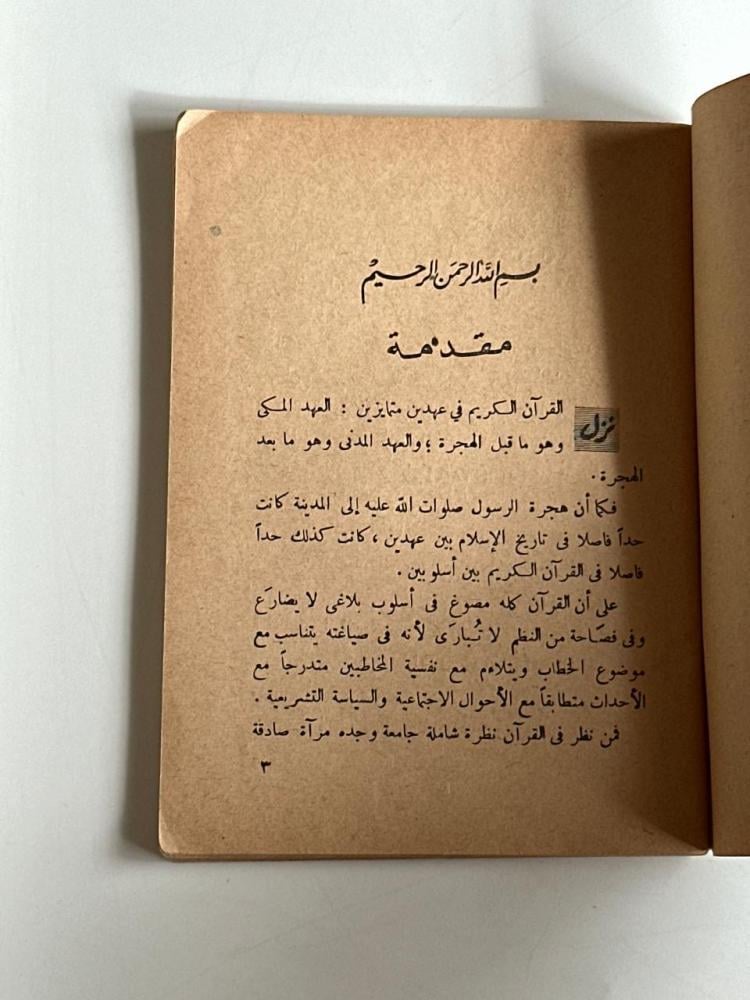 بسم الله الرحمن الرحيم
مقدمة
نزل القرآن الكريم في عهدين متمايزين : العهد المكى
وهو ما قبل الهجرة ؛ والعهد المدنى وهو ما بعد
الهجرة .
فكما أن هجرة الرسول صلوات الله عليه إلى المدينة كانت
حداً فاصلا فى تاريخ الإسلام بين عهدين ، كانت كذلك حداً
فاصلا فى القرآن الكريم بين أسلوبين .
على أن القرآن كله مصوغ فى أسلوب بلاغى لا يضارَع
وفى فصَاحة من النظم لا تُبارَى لأنه فى صياغته يتناسب مع
موضوع الخطاب ويتلاءم مع نفسية المخاطبين متدرجاً مع
الأحداث متطابقاً مع الأحوال الاجتماعية والسياسة التشريعية .
فمن نظر فى القرآن نظرة شاملة جامعة وجده مرآة صادقة
٣